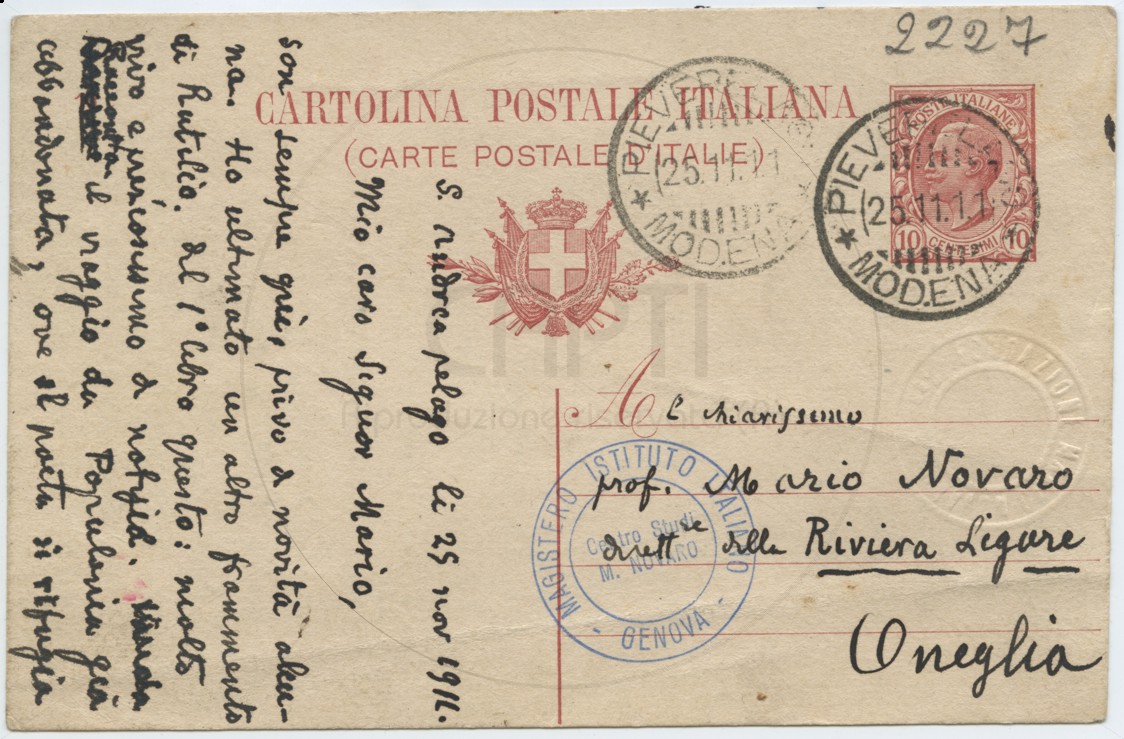 2227
CARTOLINA POSTALE ITALIANA
(CARTE POSTALE D'ITALIE)
PIEVEPE
25.11.11
MODENA
POSTE ITALIANE
10 CENTESIMI 10
PIEVEPE
25.11.11
MODENA
A l chiarissimo
prof. Mario Novaro
dirett re della Riviera Ligure
Oneglia
MAGISTERO ISTITUTO ITALIANO
Centro Studi
M. NOVARO
- GENOVA -
S. Andrea pelago li 25 nov 1911.
Mio caro Signor Mario,
son sempre qui, privo di novità alcu-
na. Ho ultimato un altro frammento
di Rutilio. del 1° libro questo: molto
vivo e preziosissimo di notizie.
il viaggio da Populonia già
abbandonata, ove il poeta si rifugia
CMPTI
Riproduzione riservata